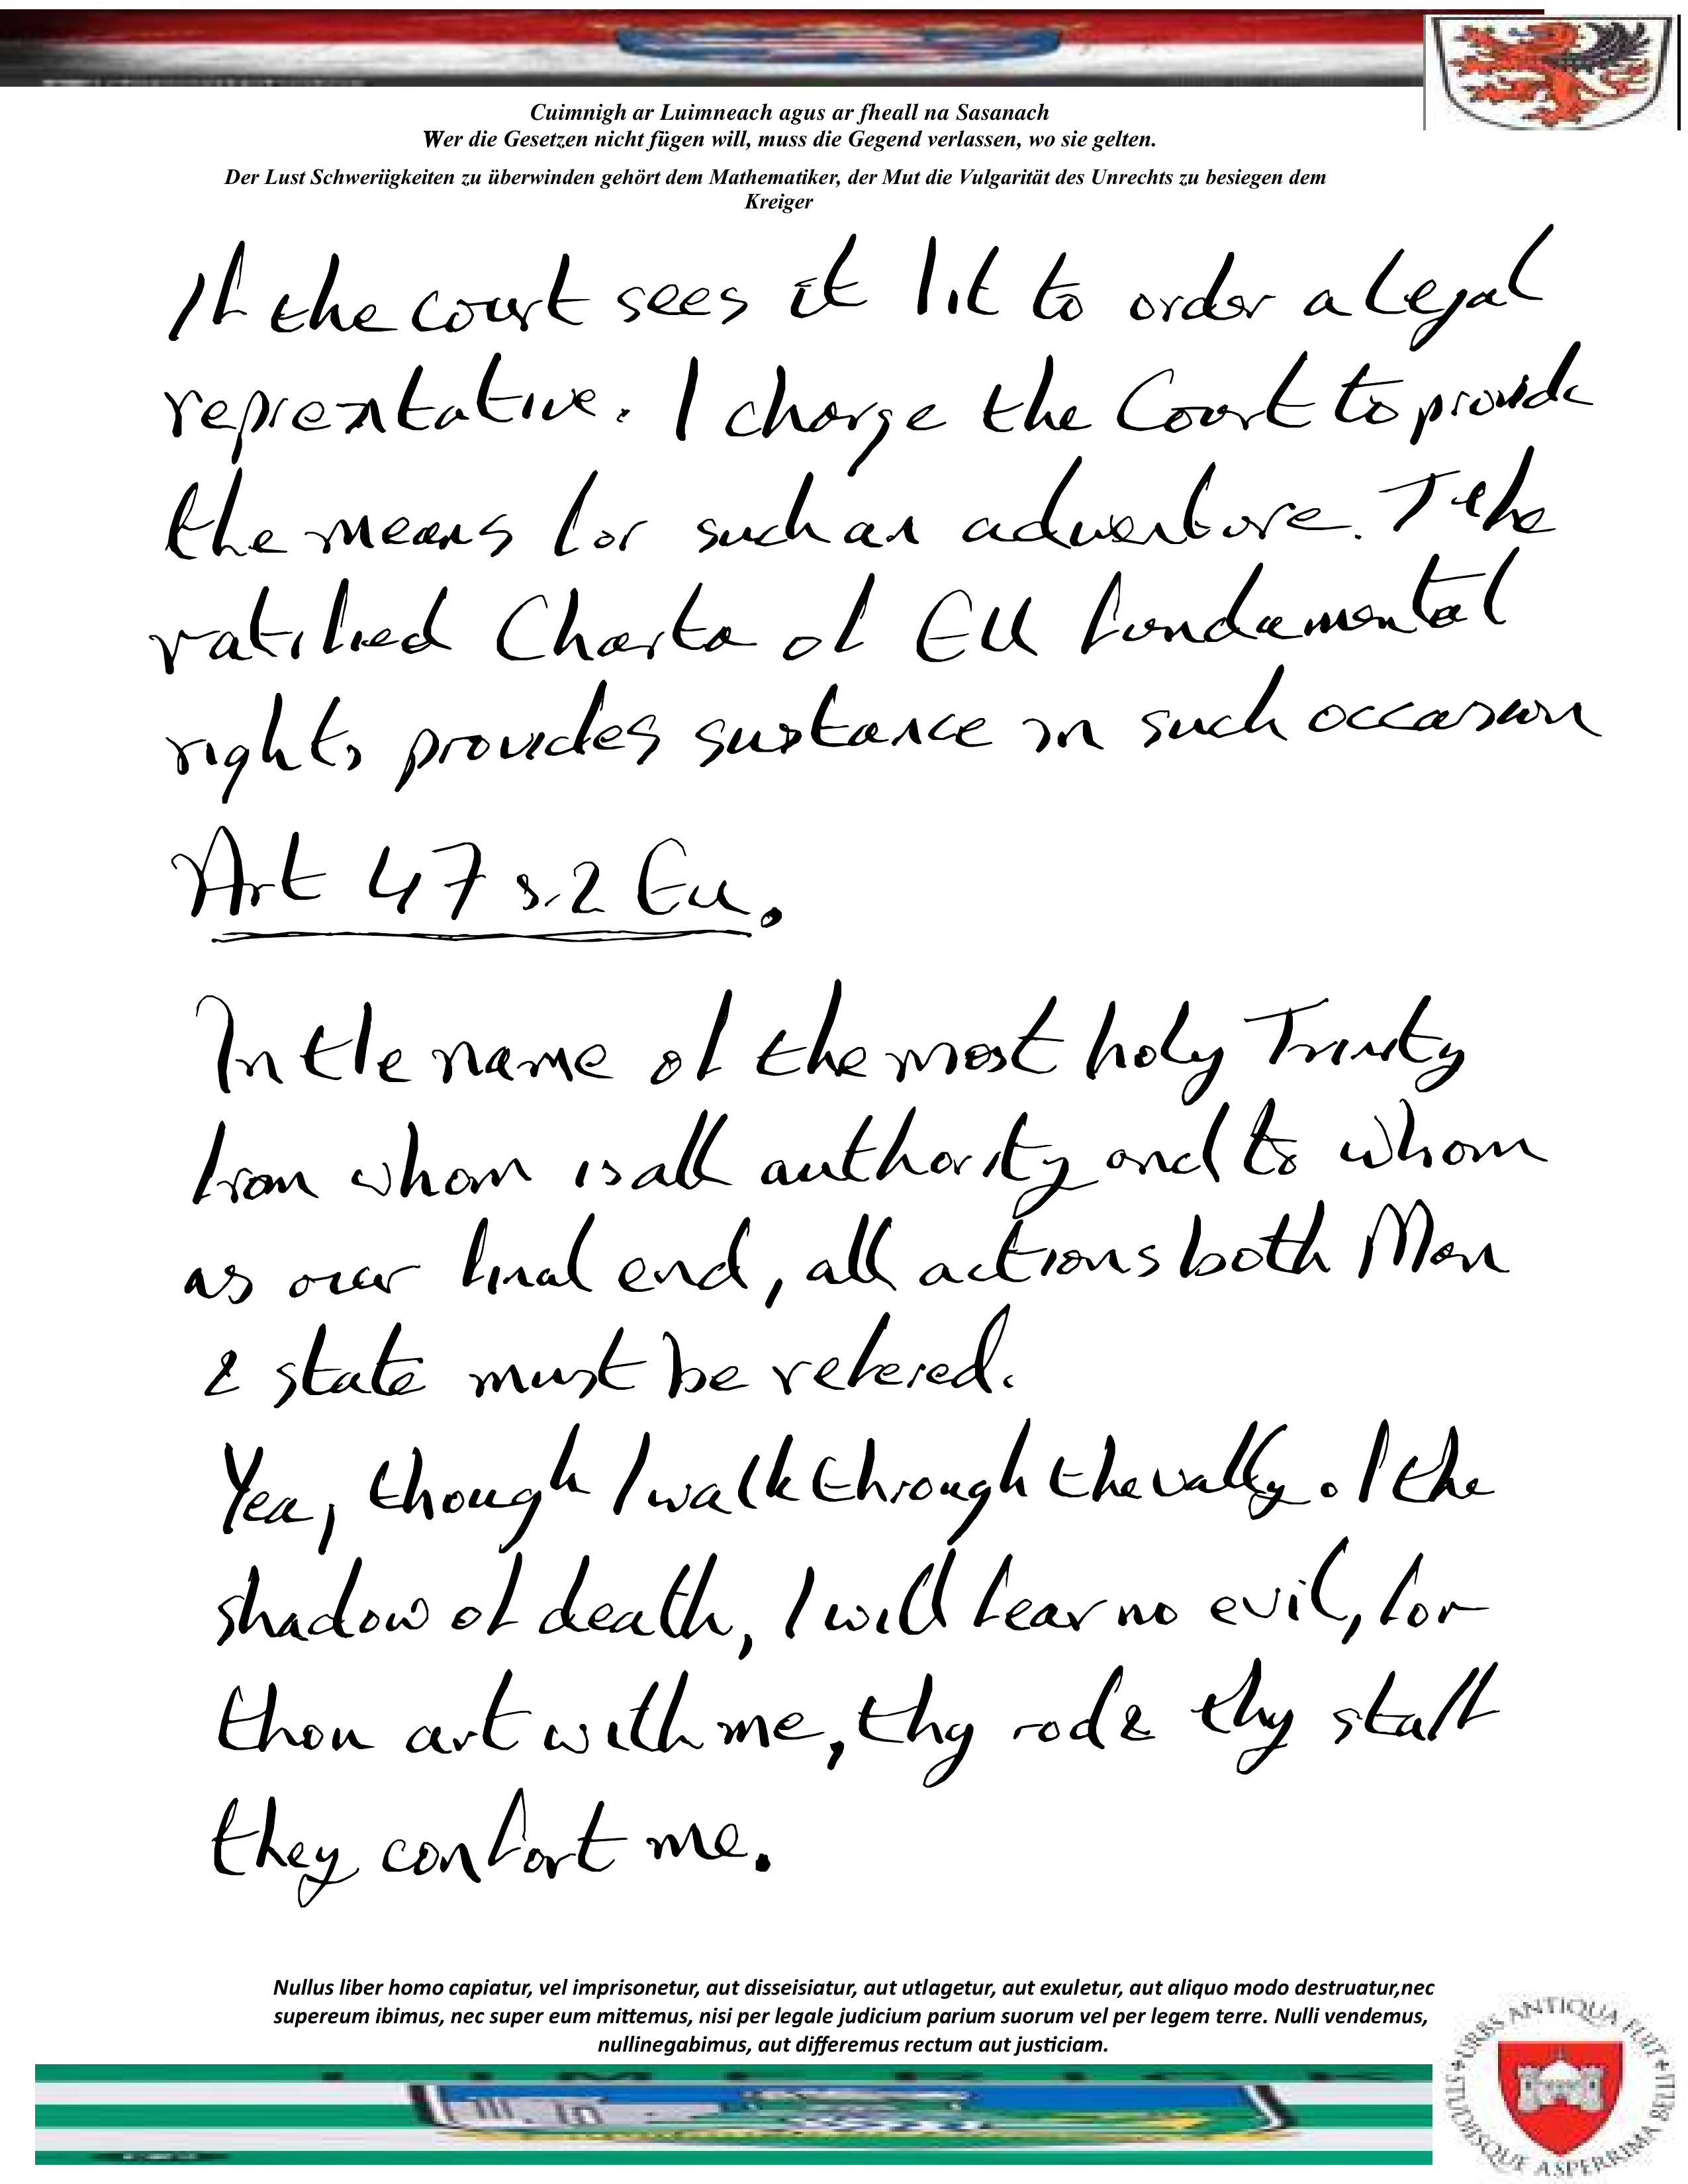 Cuimnigh ar Luimneach agus ar fheall na Sasanach
Wer die Gesetzen nicht fügen will, muss die Gegend verlassen, wo sie gelten.
Der Lust Schweriigkeiten zu überwinden gehört dem Mathematiker, der Mut die Vulgarität des Unrechts zu besiegen dem
Kreiger
If the court sees it fit to order a legal
represntative. I charge the Court to provide
the means for such an adventure. The
ratified Charta of EU fundamental
rights provides sustance in such occasion
Art 47 s.2 Eu.
In the name of the most holy Trinity
from whom is all authority and to whom
as our final end, all actions both Men
& state must be refered.
Yea, though I walk through the vally of the
shadow of death, I will fear no evil, for
thou art with me, thy rod & thy staff
they confort me.
Nullus liber homo capiatur, vel imprisonetur, aut disseisiatur, aut utlagetur, aut exuletur, aut aliquo modo destruatur,nec
supereum ibimus, nec super eum mittemus, nisi per legale judicium parium suorum vel per legem terre. Nulli vendemus,
nullinegabimus, aut differemus rectum aut justiciam.
URBS ANTIQUA FUIT STUDIISQUE ASPERRIMA BELLI